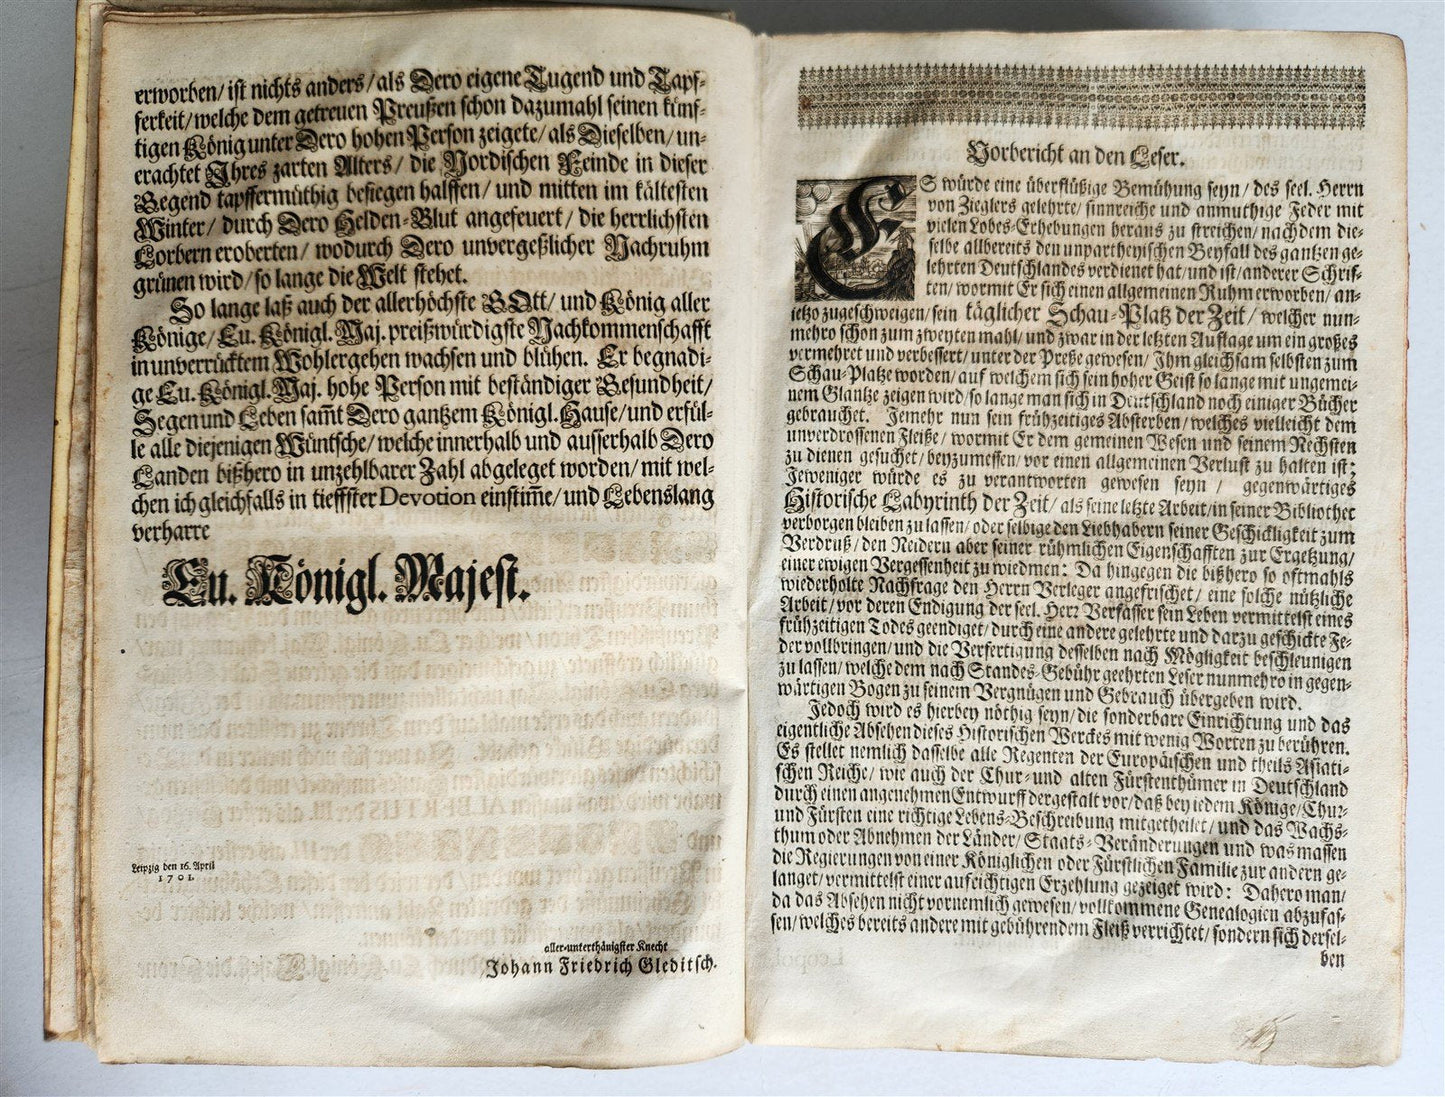 erworben/ ist nichts anders/ als Dero eigene Tugend und Tapf-
ferkeit/ welche dem getreuen Preußen schon dazumahl seinen künf-
tigen König unter Dero hohen Person zeigete/ als Dieselben/ un-
erachtet Ihres zarten Alters/ die Nordischen Feinde in dieser
Gegend tapffermüthig besiegen halffen/ und mitten im kältesten
Winter/ durch Dero Helden-Blut angefeuert/ die herrlichsten
Lorbern eroberten/ wodurch Dero unvergeßlicher Nachruhm
grünen wird/ so lange die Welt stehet.
So lange laß auch der allerhöchste GOtt/ und König aller
Könige/ Eu. Königl. Maj. preißwürdigste Nachkommenschafft
in unverrücktem Wohlergehen wachsen und blühen. Er begnadi-
ge Eu. Königl. Maj. hohe Person mit beständiger Gesundheit/
Segen und Leben sam̄t Dero gantzem Königl. Hause/ und erfül-
le alle diejenigen Wüntsche/ welche innerhalb und ausserhalb Dero
Landen bißhero in unzehlbarer Zahl abgeleget worden/ mit wel-
chen ich gleichfalls in tieffster Devotion einstim̄e/ und Lebenslang
verharre
Eu. Königl. Majest.
Leipzig den 16. April
1701.
aller-unterthänigster Knecht
Johann Friedrich Gleditsch.
Vorbericht an den Leser.
ES würde eine überflüßige Bemühung seyn/ des seel. Herrn
von Zieglers gelehrte/ sinnreiche und anmuthige Feder mit
vielen Lobes-Erhebungen heraus zu streichen/ nachdem die-
selbe allbereits den unpartheyischen Beyfall des gantzen ge-
lehrten Deutschlandes verdienet hat/ und ist/ anderer Schrif-
ten/ wormit Er sich einen allgemeinen Ruhm erworben/ an-
ietzo zugeschweigen/ sein täglicher Schau-Platz der Zeit/ welcher nun-
mehro schon zum zweyten mahl/ und zwar in der letzten Auflage um ein großes
vermehret und verbessert/ unter der Preße gewesen/ Ihm gleichsam selbsten zum
Schau-Platze worden/ auf welchem sich sein hoher Geist so lange mit ungemei-
nem Glantze zeigen wird/ so lange man sich in Deutschland noch einiger Bücher
gebrauchet. Jemehr nun sein frühzeitiges Absterben/ welches vielleicht dem
unverdrossenen Fleiße/ wormit Er dem gemeinen Wesen und seinem Nechsten
zu dienen gesuchet/ beyzumessen/ vor einen allgemeinen Verlust zu halten ist;
Jeweniger würde es zu verantworten gewesen seyn/ gegenwärtiges
Historische Labyrinth der Zeit/ als seine letzte Arbeit/ in seiner Bibliothec
verborgen bleiben zu lassen/ oder selbige den Liebhabern seiner Geschickligkeit zum
Verdruß/ den Neidern aber seiner rühmlichen Eigenschafften zur Ergetzung/
einer ewigen Vergessenheit zu wiedmen: Da hingegen die bißhero so oftmahls
wiederholte Nachfrage den Herrn Verleger angefrischet/ eine solche nützliche
Arbeit/ vor deren Endigung der seel. Herr Verfasser sein Leben vermittelst eines
frühzeitigen Todes geendiget/ durch eine andere gelehrte und darzu geschickte Fe-
der vollbringen/ und die Verfertigung desselben nach Mögligkeit beschleunigen
zu lassen/ welche dem nach Standes-Gebühr geehrten Leser nunmehro in gegen-
wärtigen Bogen zu seinem Vergnügen und Gebrauch übergeben wird.
Jedoch wird es hierbey nöthig seyn/ die sonderbare Einrichtung und das
eigentliche Absehen dieses Historischen Werckes mit wenig Worten zu berühren.
Es stellet nemlich dasselbe alle Regenten der Europäischen und theils Asiati-
schen Reiche/ wie auch der Chur- und alten Fürstenthümer in Deutschland
durch einen angenehmen Entwurff dergestalt vor/ daß bey iedem Könige/ Chur-
und Fürsten eine richtige Lebens-Beschreibung mitgetheilet/ und das Wachs-
thum oder Abnehmen der Länder/ Staats-Veränderungen und was massen
die Regierungen von einer Königlichen oder Fürstlichen Familie zur andern ge-
langet/ vermittelst einer aufrichtigen Erzehlung gezeiget wird: Dahero man/
da das Absehen nicht vornemlich gewesen/ vollkommene Genealogien abzufas-
sen/ welches bereits andere mit gebührendem Fleiß verrichtet/ sondern sich dersel-
ben